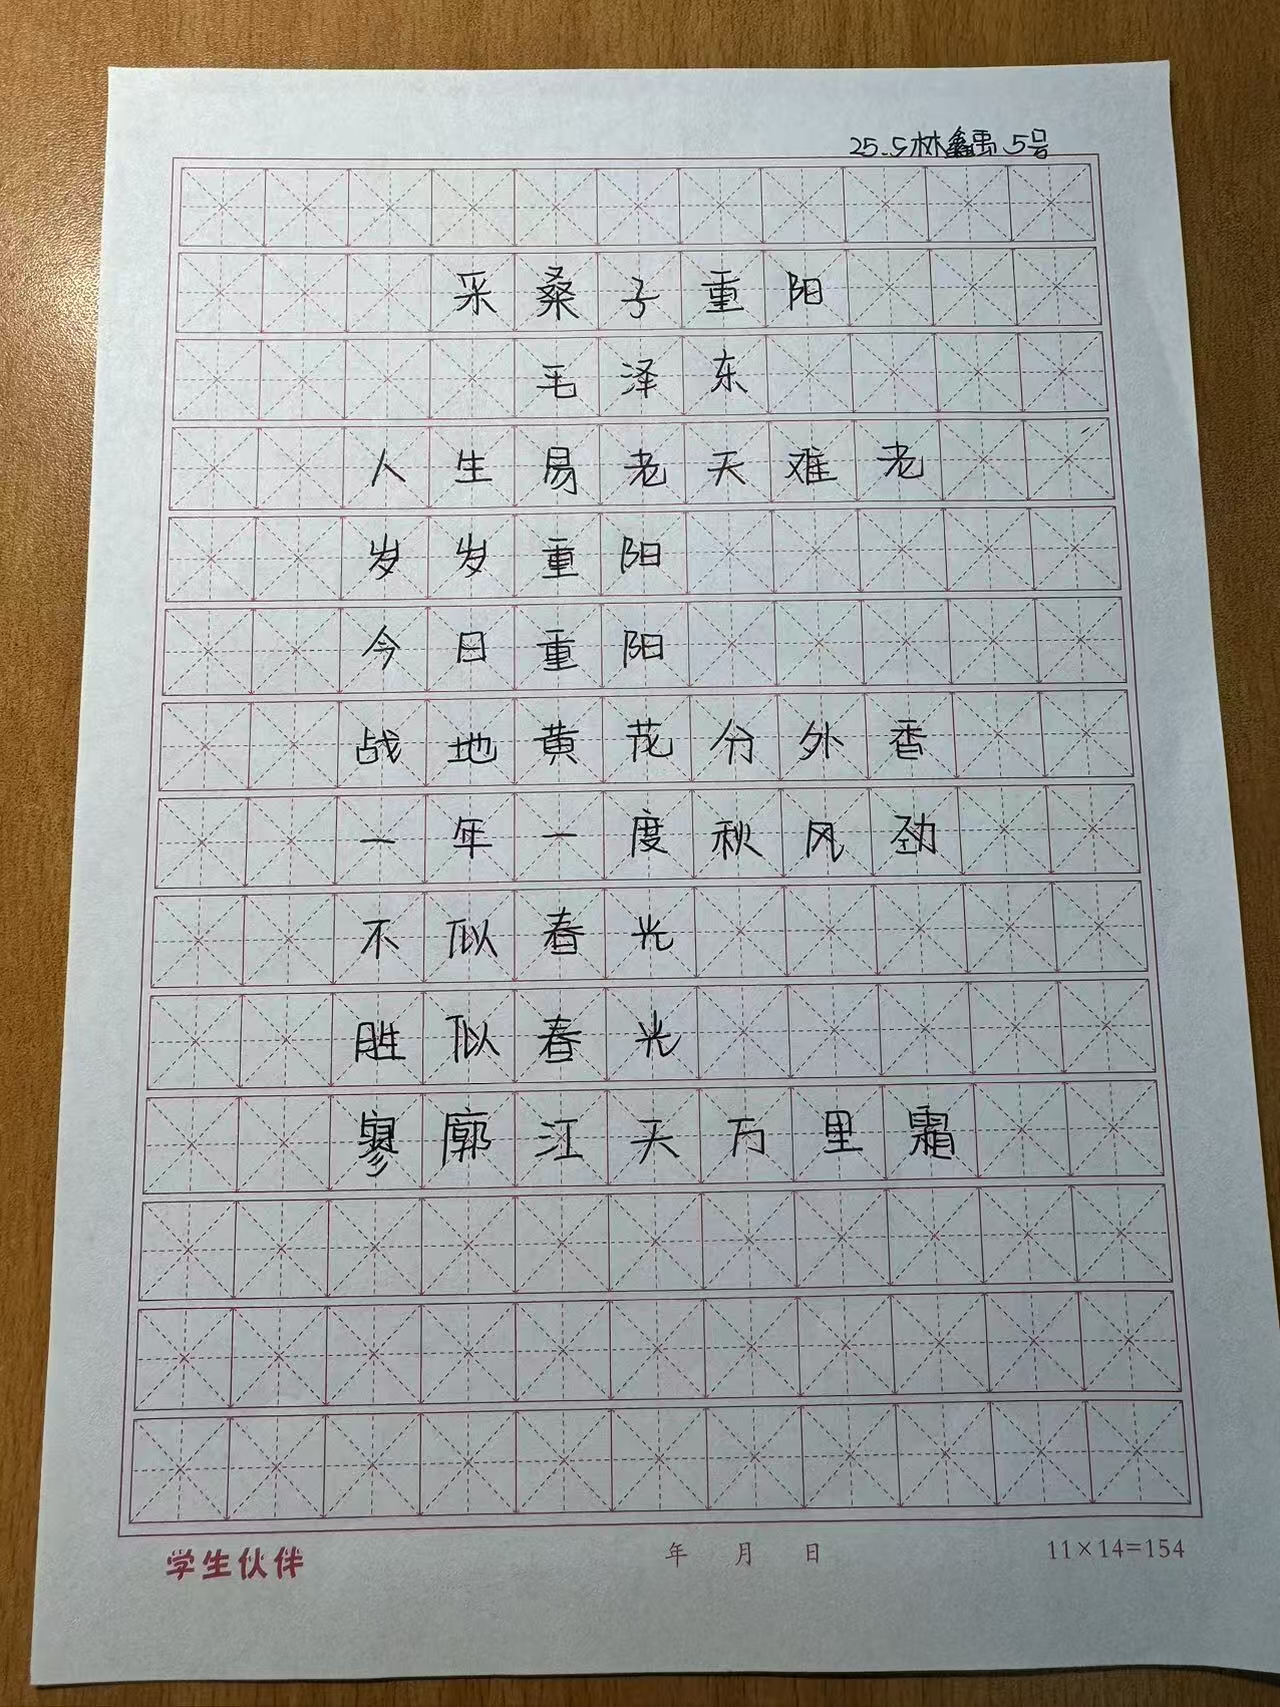 25.5林鑫禹 5号
采桑子重阳
毛泽东
人生易老天难老
岁岁重阳
今日重阳
战地黄花分外香
一年一度秋风劲
不似春光
胜似春光
寥廓江天万里霜
学生伙伴 年 月 日 11×14=154